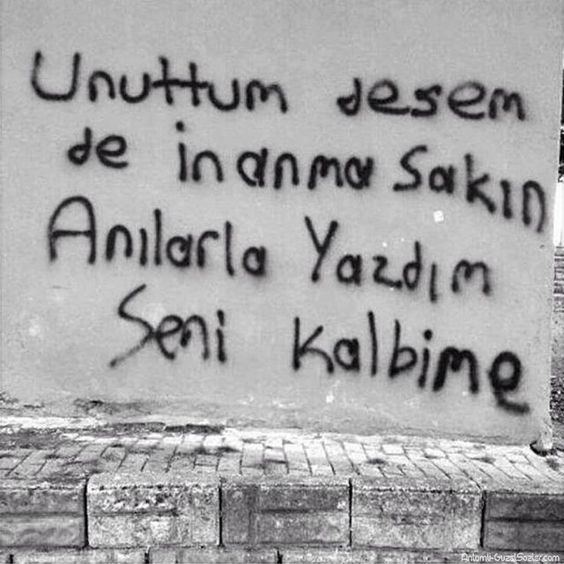 Unuttum desem
de inanma sakın
Anılarla Yazdım
Seni Kalbime
Anlamli-GuzelSozler.com